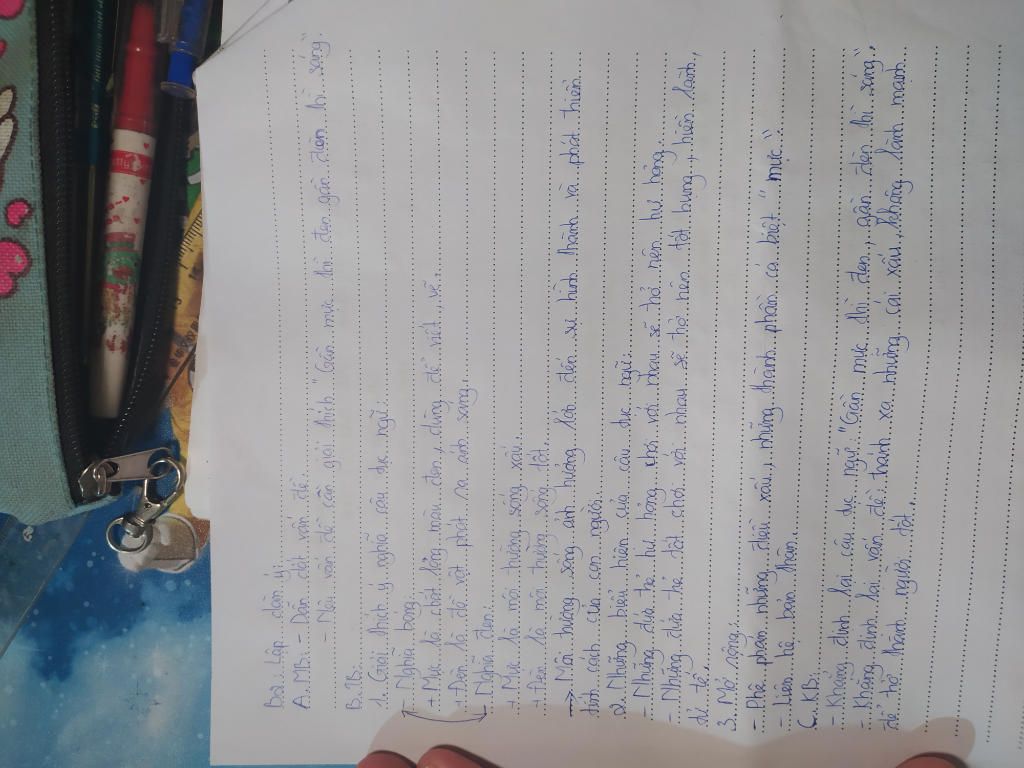 Bài: Lập dàn ý:
A. MB: - Dẫn dắt vấn đề.
- Nêu vấn đề cần giải thích "Gần mực thì đen gần đèn thì sáng".
B. TB:
1. Giải thích ý nghĩa câu tục ngữ:
- Nghĩa bóng:
+ Mực là chất lỏng màu đen, dùng để viết, vẽ.
+ Đèn là đồ vật phát ra ánh sáng.
- Nghĩa đen:
+ Mực là môi trường sống xấu.
+ Đèn là môi trường sống tốt.
→ Môi trường sống ảnh hưởng lớn đến sự hình thành và phát triển
tính cách của con người.
2. Những biểu hiện của câu tục ngữ:
- Những đứa trẻ hư hỏng chơi với nhau sẽ trở nên hư hỏng.
- Những đứa trẻ tốt chơi với nhau sẽ trở nên tốt bụng, hiền lành,
tử tế.
3. Mở rộng:
- Phê phán những điều xấu, những thành phần cá biệt "mực".
- Liên hệ bản thân.
C. KB:
- Khẳng định lại câu tục ngữ "Gần mực thì đen, gần đèn thì sáng".
- Khẳng định lại vấn đề tránh xa những cái xấu, không lành mạnh
để trở thành người tốt.